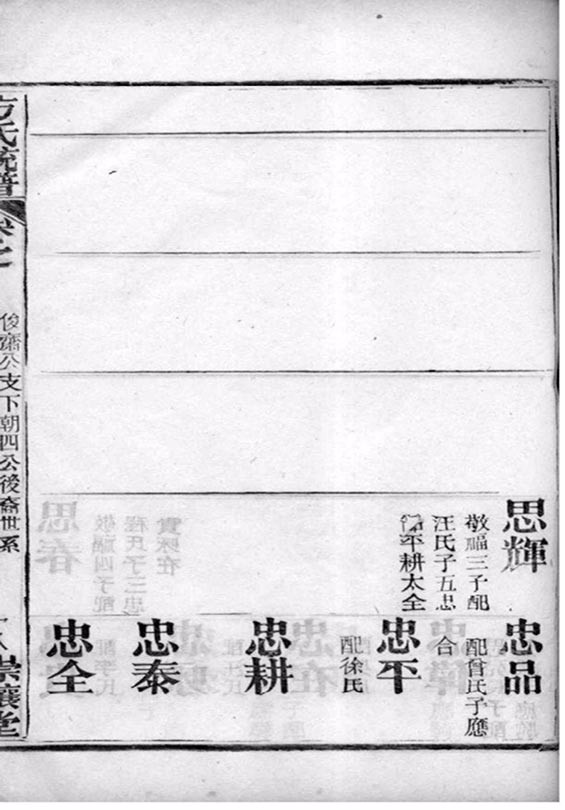 思輝
敬福三子配
汪氏子五忠
平耕太全
忠品
配曾氏子應
合
忠平
配徐氏
忠耕
忠泰
忠全
方氏統譜
卷之
俊齋公支下朝四公後裔世系
崇讓堂